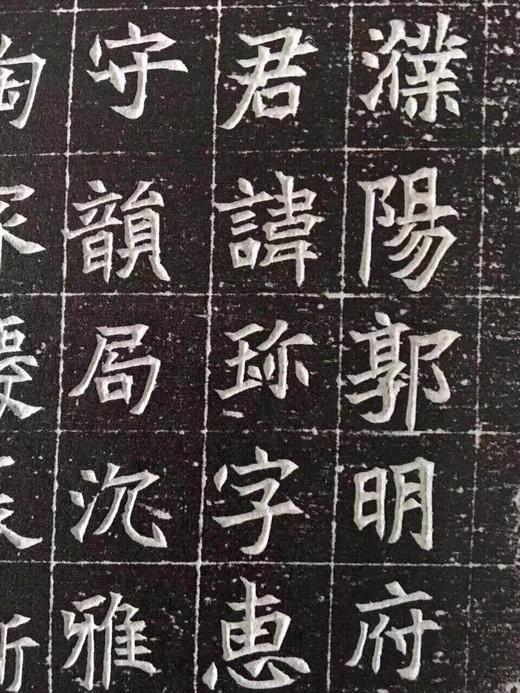 濮陽郭明府
君諱珎字恵
守韻局沉雅